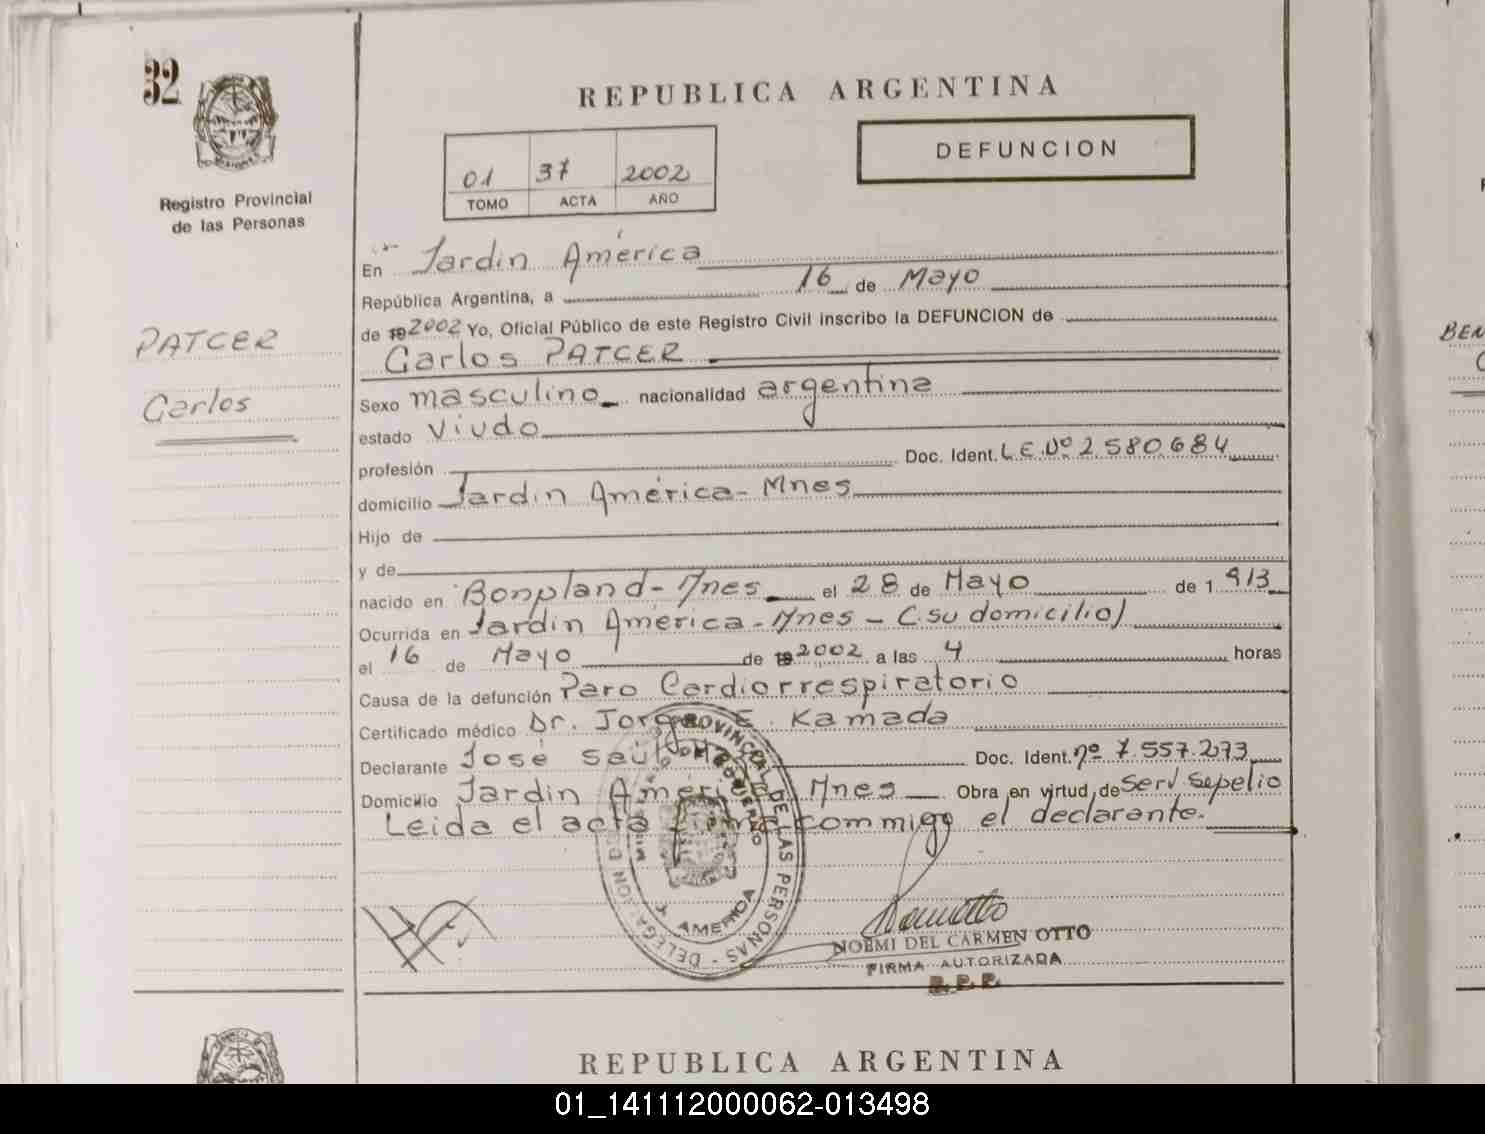 32
REPUBLICA ARGENTINA
DEFUNCION
01 37 2002
TOMO ACTA AÑO
Registro Provincial
de las Personas
PATCER
Carlos
En Jardin América
República Argentina, a 16 de Mayo
de 19 2002 Yo, Oficial Público de este Registro Civil inscribo la DEFUNCION de
Carlos PATCER
Sexo masculino nacionalidad argentina
estado Viudo
profesión Doc. Ident. L.E.Nº 2.580.684
domicilio Jardin América - Mnes
Hijo de
y de
nacido en Bonpland - Mnes el 28 de Mayo de 1 913
Ocurrida en Jardin América - Mnes - (su domicilio)
el 16 de Mayo de 19 2002 a las 4 horas
Causa de la defunción Paro Cardiorrespiratorio
Certificado médico Dr. Jorge E. Kamada
Declarante José Saül Doc. Ident. nº 7.557.273
Domicilio Jardin América Mnes Obra en virtud de Serv Sepelio
Leida el acta firma commigo el declarante.
PROVINCIAL DE LAS PERSONAS - DELEGACION
AMERICA
NOEMI DEL CARMEN OTTO
FIRMA AUTORIZADA
R.P.P.
BEN
REPUBLICA ARGENTINA
01_141112000062-013498